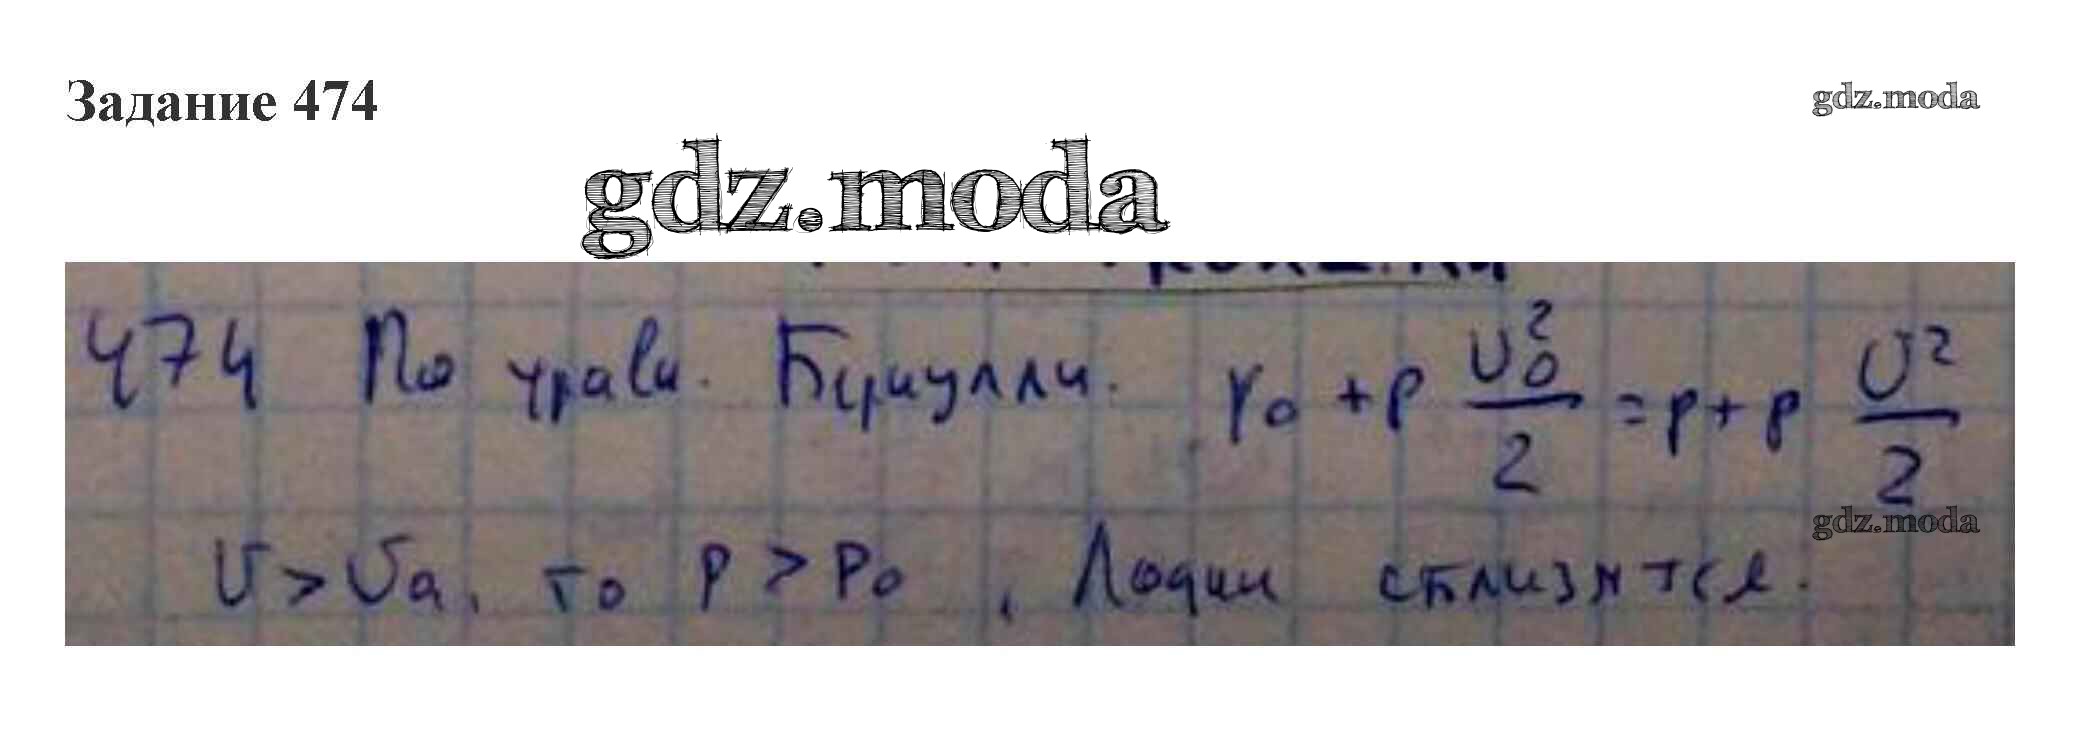 Задание 474
gdz.moda
gdz.moda
474 По уравн. Бернулли. p₀ + ρ U₀²/2 = p + ρ U²/2
gdz.moda
U > Uₐ, то p > p₀, Лодки сблизятся.